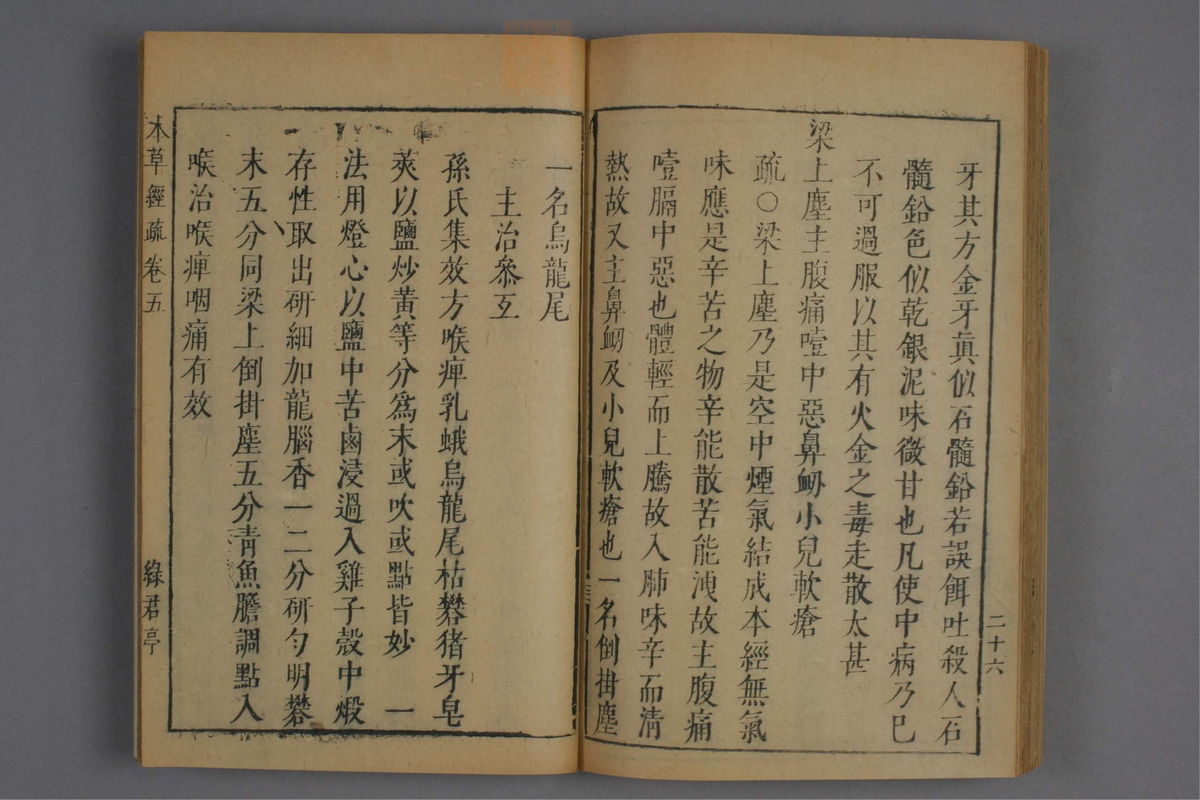 二十六
牙其方金牙眞似石髓鉛若誤餌吐殺人石
髓鉛色似乾銀泥味微甘也凡使中病乃已
不可過服以其有火金之毒走散太甚
梁上塵主腹痛噎中惡鼻衂小兒軟瘡
疏○梁上塵乃是空中煙氣結成本經無氣
味應是辛苦之物辛能散苦能洩故主腹痛
噎膈中惡也體輕而上騰故入肺味辛而清
熱故又主鼻衂及小兒軟瘡也一名倒掛塵
一名烏龍尾
主治叅互
孫氏集效方喉痺乳蛾烏龍尾枯礬猪牙皂
莢以鹽炒黄等分爲末或吹或點皆妙 一
法用燈心以鹽中苦鹵浸過入雞子殼中煅
存性取出硏細加龍腦香一二分硏勻明礬
末五分同梁上倒掛塵五分青魚膽調點入
喉治喉痺咽痛有效
本草經疏 卷五 綠君亭